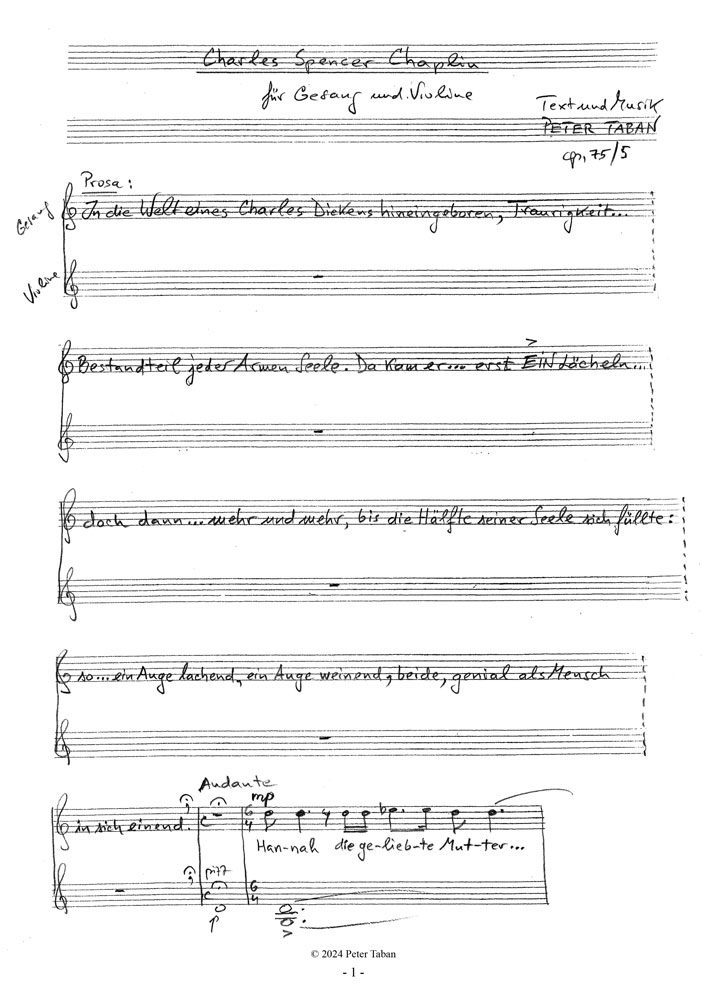 Charles Spencer Chaplin
für Gesang und Violine
Text und Musik
PETER TABAN
op. 75/5
Prosa:
Gesang
In die Welt eines Charles Dickens hineingeboren, Traurigkeit...
Violine
Bestandteil jeder Armen Seele. Da kam er... erst EIN Lächeln...
doch dann... mehr und mehr, bis die Hälfte seiner Seele sich füllte:
so... ein Auge lachend, ein Auge weinend, beide, genial als Mensch
Andante
mp
6
4
in sich einend.
Han-nah die ge-lieb-te Mut-ter...
pizz
6
4
p
© 2024 Peter Taban
- 1 -